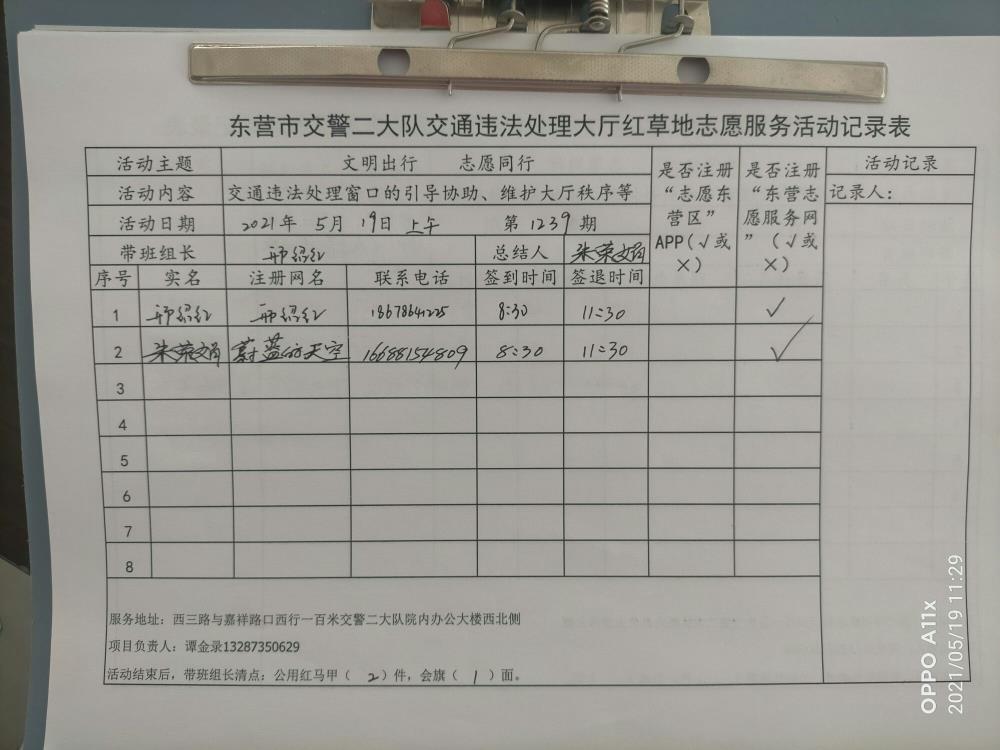 东营市交警二大队交通违法处理大厅红草地志愿服务活动记录表
活动主题 文明出行 志愿同行 是否注册“志愿东营区”APP(√或×) 是否注册“东营志愿服务网”(√或×) 活动记录
活动内容 交通违法处理窗口的引导协助、维护大厅秩序等 记录人:
活动日期 2021年 5月 19日 上午 第 1239 期
带班组长 邢绍红 总结人 朱荣娟
序号 实名 注册网名 联系电话 签到时间 签退时间
1 邢绍红 邢绍红 18678641225 8:30 11:30 √
2 朱荣娟 蔚蓝的天空 16688154809 8:30 11:30 √
3
4
5
6
7
8
服务地址: 西三路与嘉祥路口西行一百米交警二大队院内办公大楼西北侧
项目负责人: 谭金录13287350629
活动结束后, 带班组长清点: 公用红马甲( 2 )件, 会旗( 1 )面。
OPPO A11x
2021/05/19 11:29